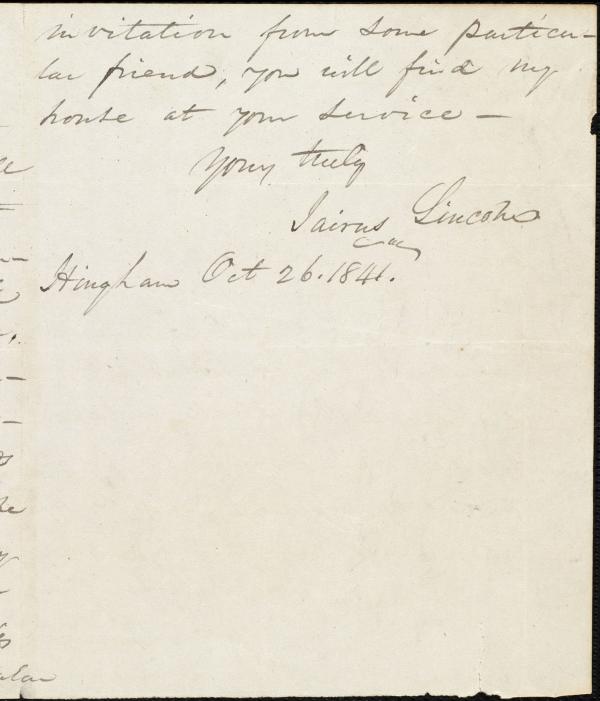 invitation from some particu-
lar friend, you will find my
house at your service —
Yours truly
Jairus Lincoln
Hingham Oct 26. 1841.